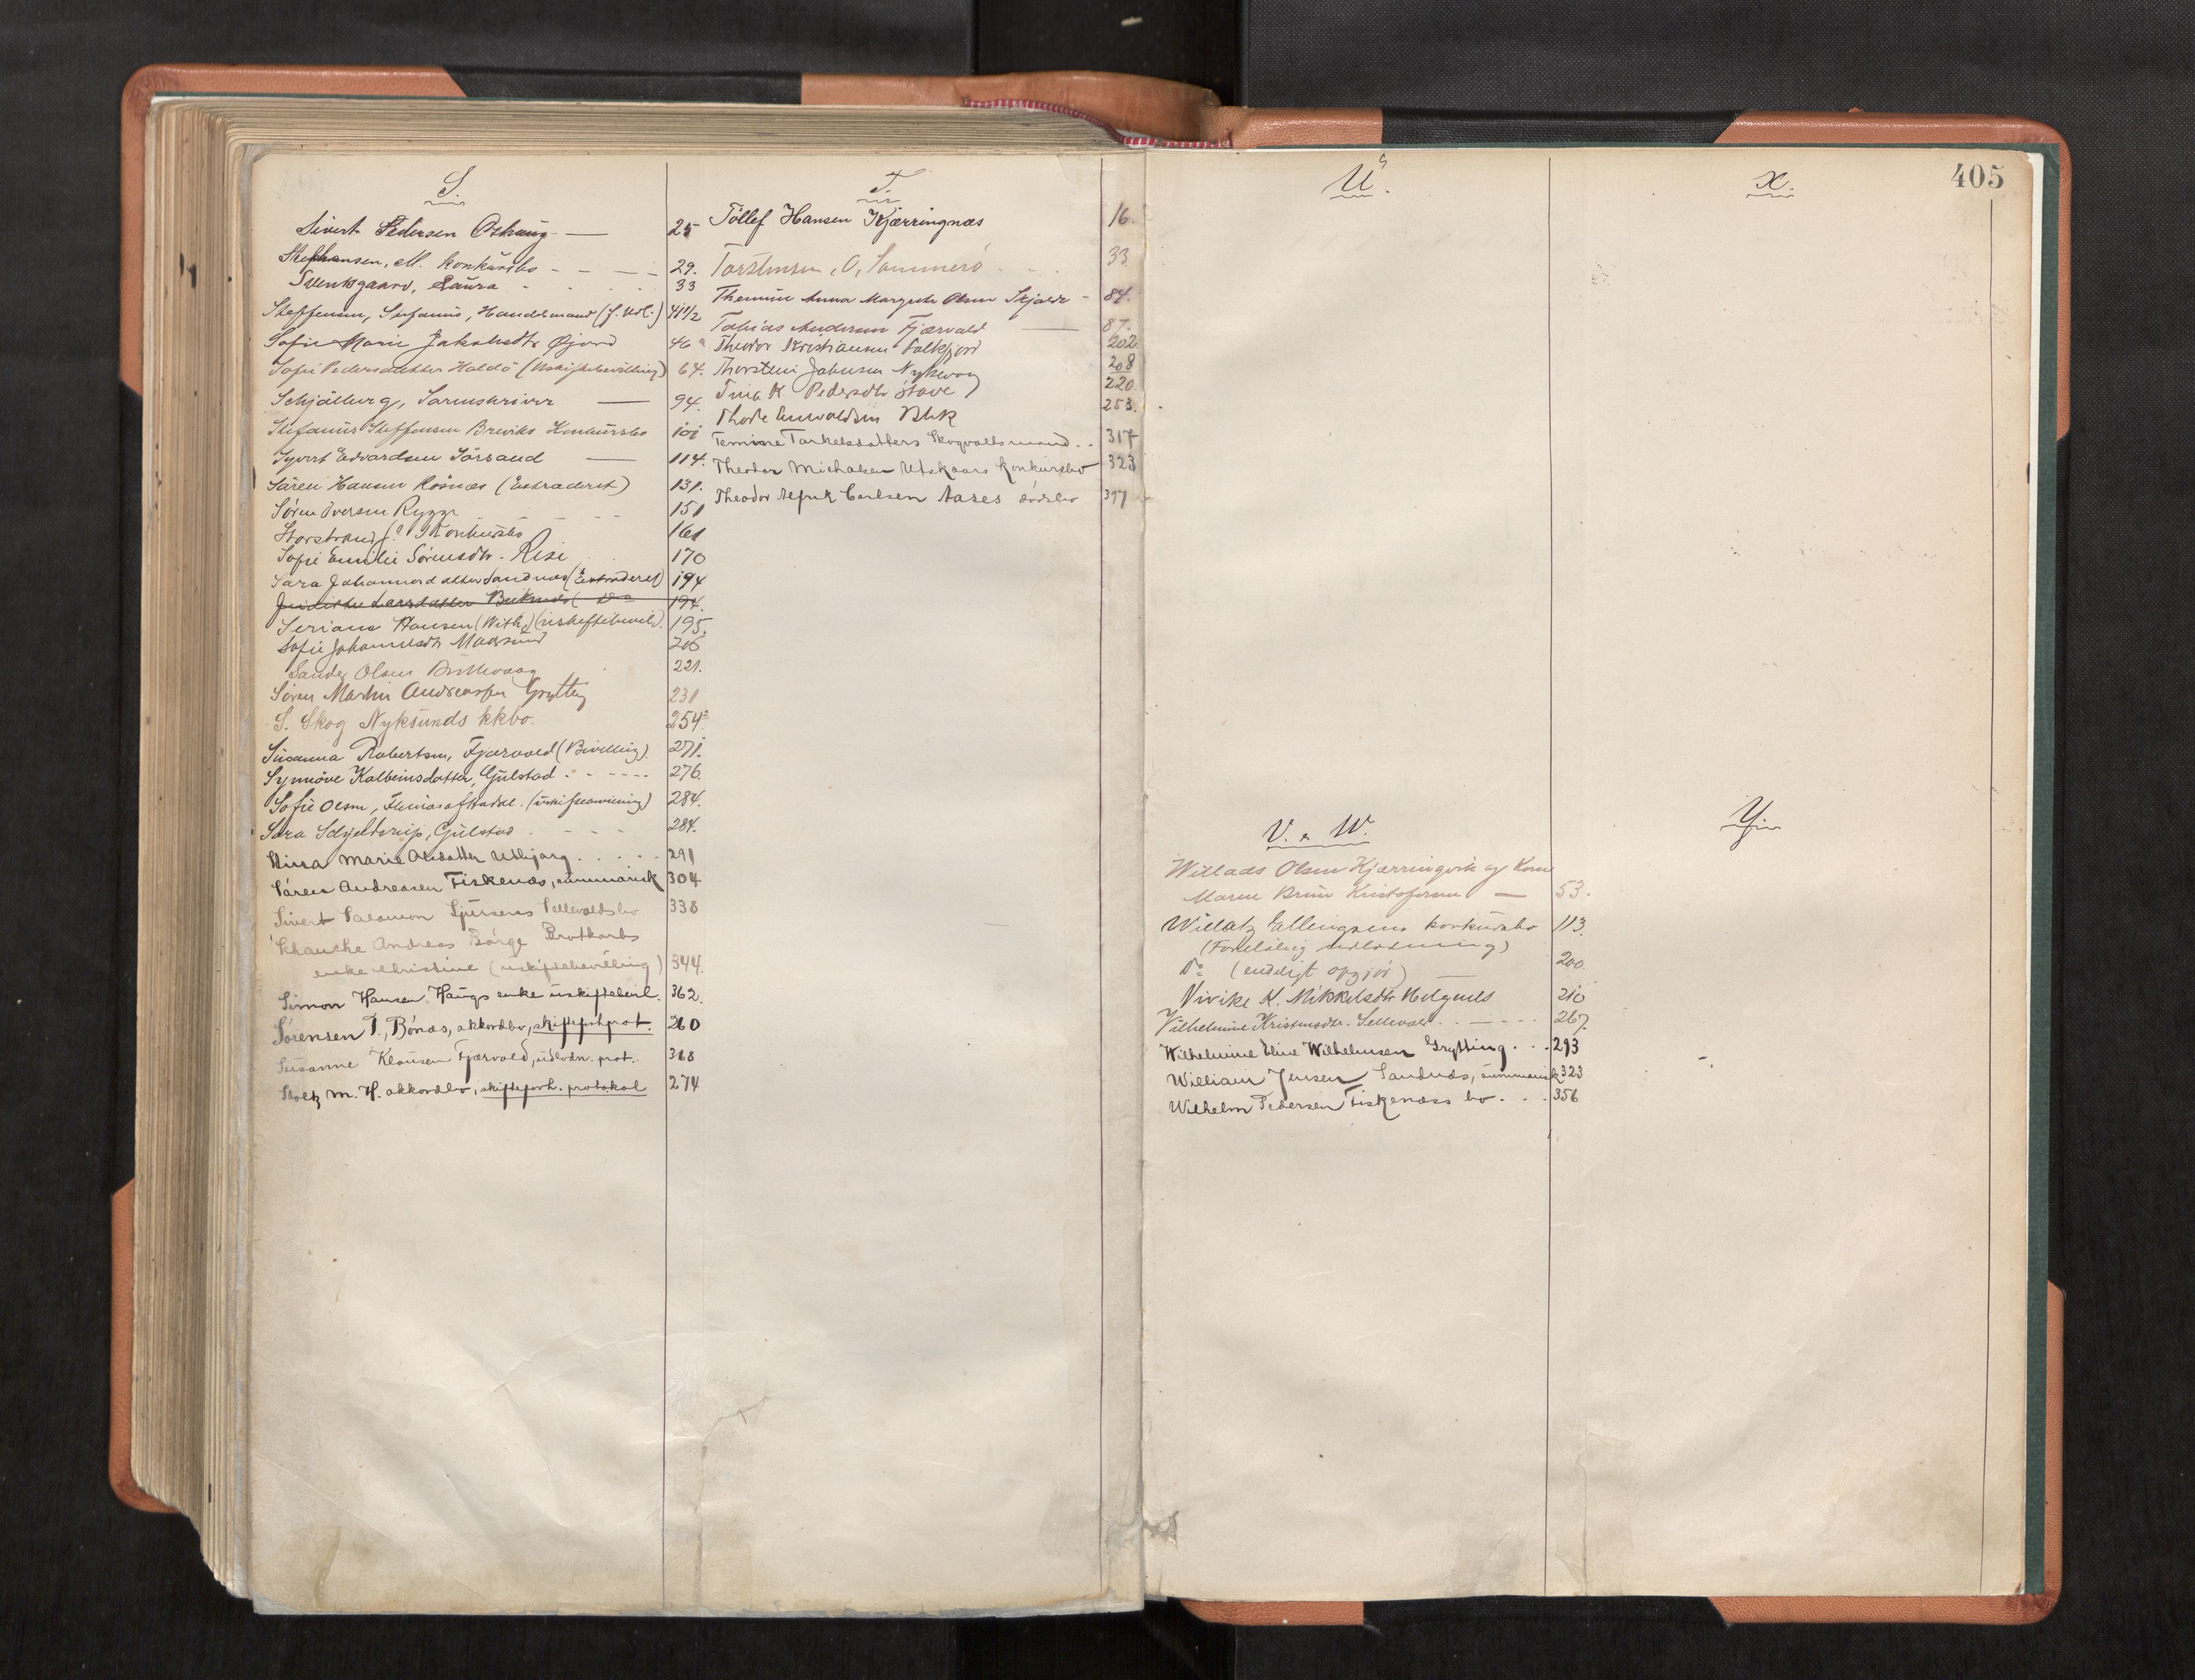 S.
Sivert Pedersen Oshaug — 25
Stephansen, M. konkursbo - - — 29.
Svendsgaard, Laura - 33
Steffensen, Stefanus, Handelsmand (f. Udl.) 41 1/2
Sofie Marie Jakobsdtr Øjord 46
Sofie Pedersdatter Haldø (Uskiftebevilling) 64.
Schjølberg, Sorenskriver — 94.
Stefanus Steffensen Breviks Konkursbo 101
Syvert Edvardsen Sørsand — 114.
Søren Hansen Rosnæs (Extraderet) 131.
Søren Iversen Rygge 151
Storstrand Konkursbo 161
Sofie Emilie Sørensdtr. Rise 170
Sara Johannesdatter Sandnæs (Extraderet) 194
Larsdatter Do 194.
Seriane Hansen (With) (uskiftebevil.) 195.
Sofie Johannesdtr Maarsund 206
Sander Olsen 221.
Søren Martin Andreassen Grytting 231
S. Skog Nyksunds kkbo. 254²
Susanna Robertsen, Fjærvold (Bevilling). 271.
Synnöve Kolbeinsdatter, Gulstad . - - - - - 276.
Sofie Olsen, 284.
Sara Schjelderup, Gulstad - - - 284.
Stina Marie Olsdatter Utbjørg . . . . . 291
Søren Andreasen Fiskenæs, summarisk 304
Sivert Salamon Sjursens Sellevoldsbo 338
Schanche Andreas Børge Brotkorbs
enke Christine (uskiftebevilling) 344.
Simon Hansen Haugs enke uskiftebevil. 362.
Sørensen P., Bønæs, akkordbo, skifteforh.prot. 260
Susanne Klausen Fjærvold, udlodn. prot. 368
Stoltz M. H. akkordbo, skifteforh. protokol 274
T.
Tollef Hansen Kjærringnæs 16.
Torstensen, O, Sommerø . . 33
Anna Margrete Olsen - 84.
Tobias Andersen Fjærvold — 87.
Theodor Kristiansen Falkfjord 202
Thorstein Johnsen Nykvaag 208
Tina K. Pedersdtr Stave 220
Thore Enevoldsen Blek 253.
Temine Tarkelsdatters Skogvollsmand . . 317
Theodor Michalsen Utskaars konkursbo 323
Theodor Carlsen Aases dødsbo 397
U.
V. & W.
Willads Olsen Kjærringvik og Kone
Maren Kristofersen — 53.
Willatz Ellingsens konkursbo 113.
(Foreløbig udlodning)
Do (endeligt opgjør) — 200.
Vivike K. Mikkelsdtr Helgenes 210
Vilhelmine Kristensdtr. Sellevold . . — - - - 267.
Wilhelmine Eline Wilhelmsen Grytting . . . 293
William Jensen Sandnæs, summarisk 323
Wilhelm Pedersen Fiskenæss bo . . . 356
405
X.
Y.